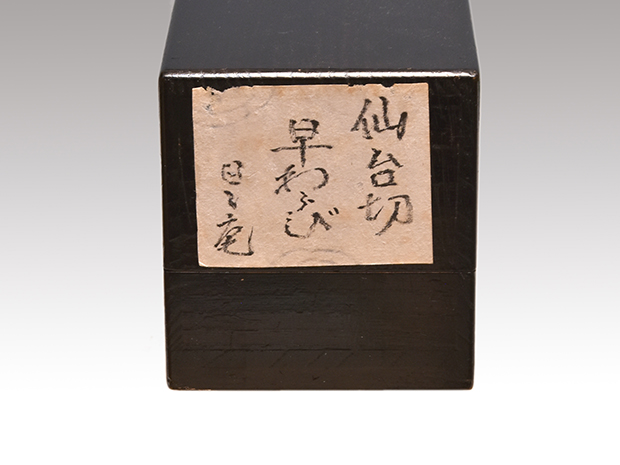 仙台切
早わらび
日々庵